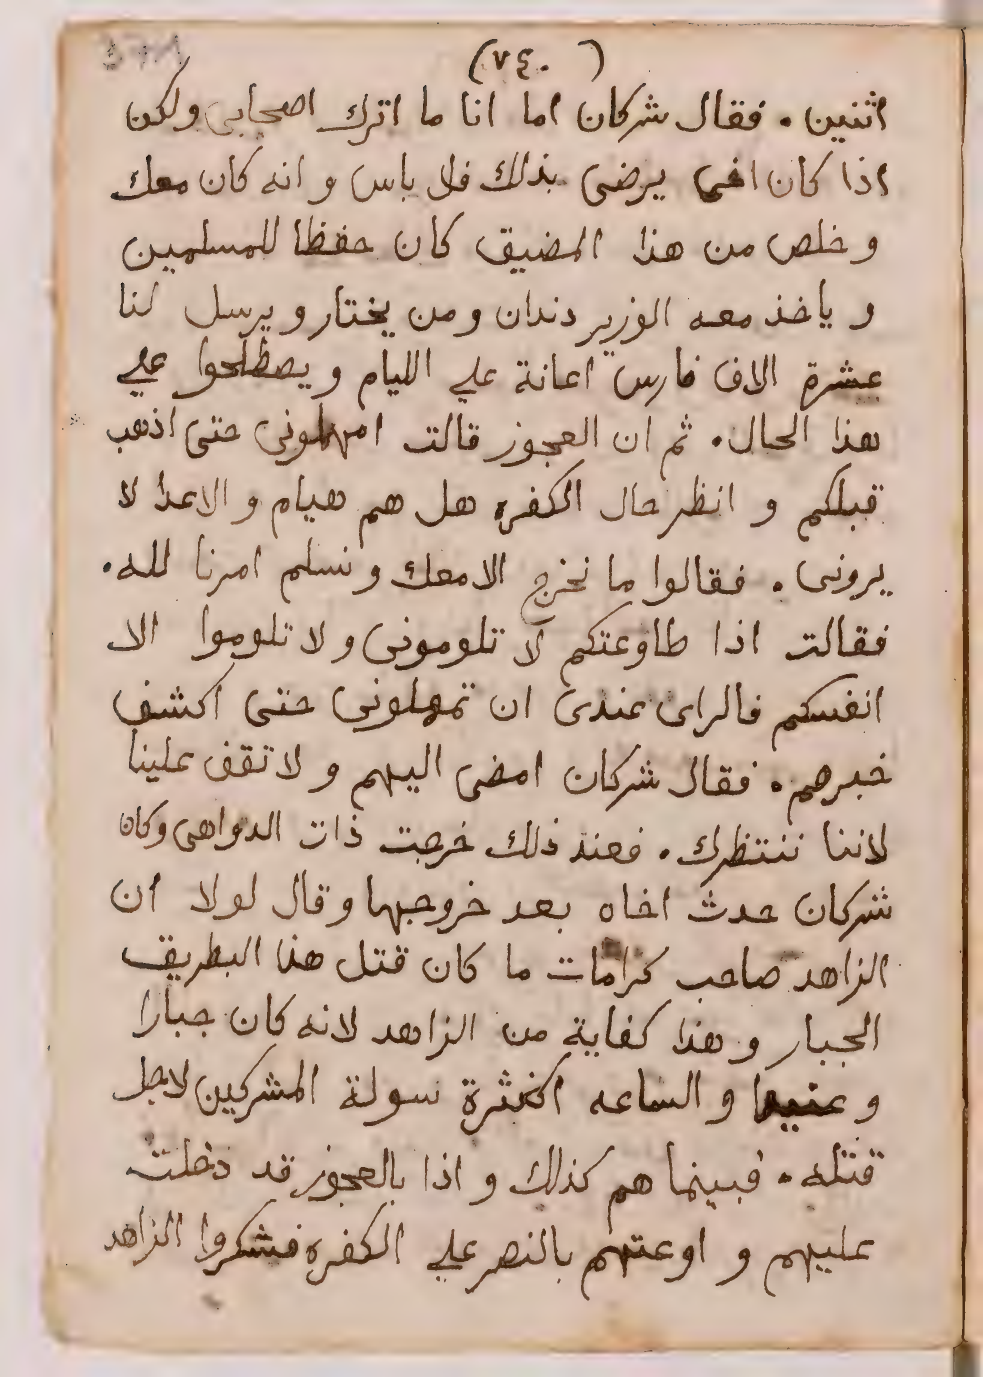 (٧٤٠)
اثنين . فقال شركان اما انا ما اترك اصحابي ولكن
اذا كان اخي يرضى بذلك فلا باس و انه كان معك
و خلص من هذا المضيق كان حفظا للمسلمين
و ياخذ معه الوزير دندان و من يختار و يرسل لنا
عشرة الاف فارس اعانة علي الليام و يصطلحوا علي
هذا الحال . ثم ان العجوز قالت امهلوني حتى اذهب
قبلكم و انظر حال الكفره هل هم هيام و الاعدا لا
يروني . فقالوا ما نخرج الا معك و نسلم امرنا لله .
فقالت اذا طاوعتكم لا تلوموني و لا تلوموا الا
انفسكم فالراي عندي ان تمهلوني حتى اكشف
خبرهم . فقال شركان امضى اليهم و لا تقف علينا
لاننا ننتظرك . فعند ذلك خرجت ذات الدواهى وكان
شركان حدث اخاه بعد خروجها و قال لولا ان
الزاهد صاحب كرامات ما كان قتل هذا البطريق
الجبار و هذا كفاية من الزاهد لانه كان جبارا
و عنيدا و الساعه سولة المشركين لاجل
قتله . فبينما هم كذلك و اذا بالعجوز قد دخلت
عليهم و اوعتهم بالنصر علي الكفره فشكروا الزاهد